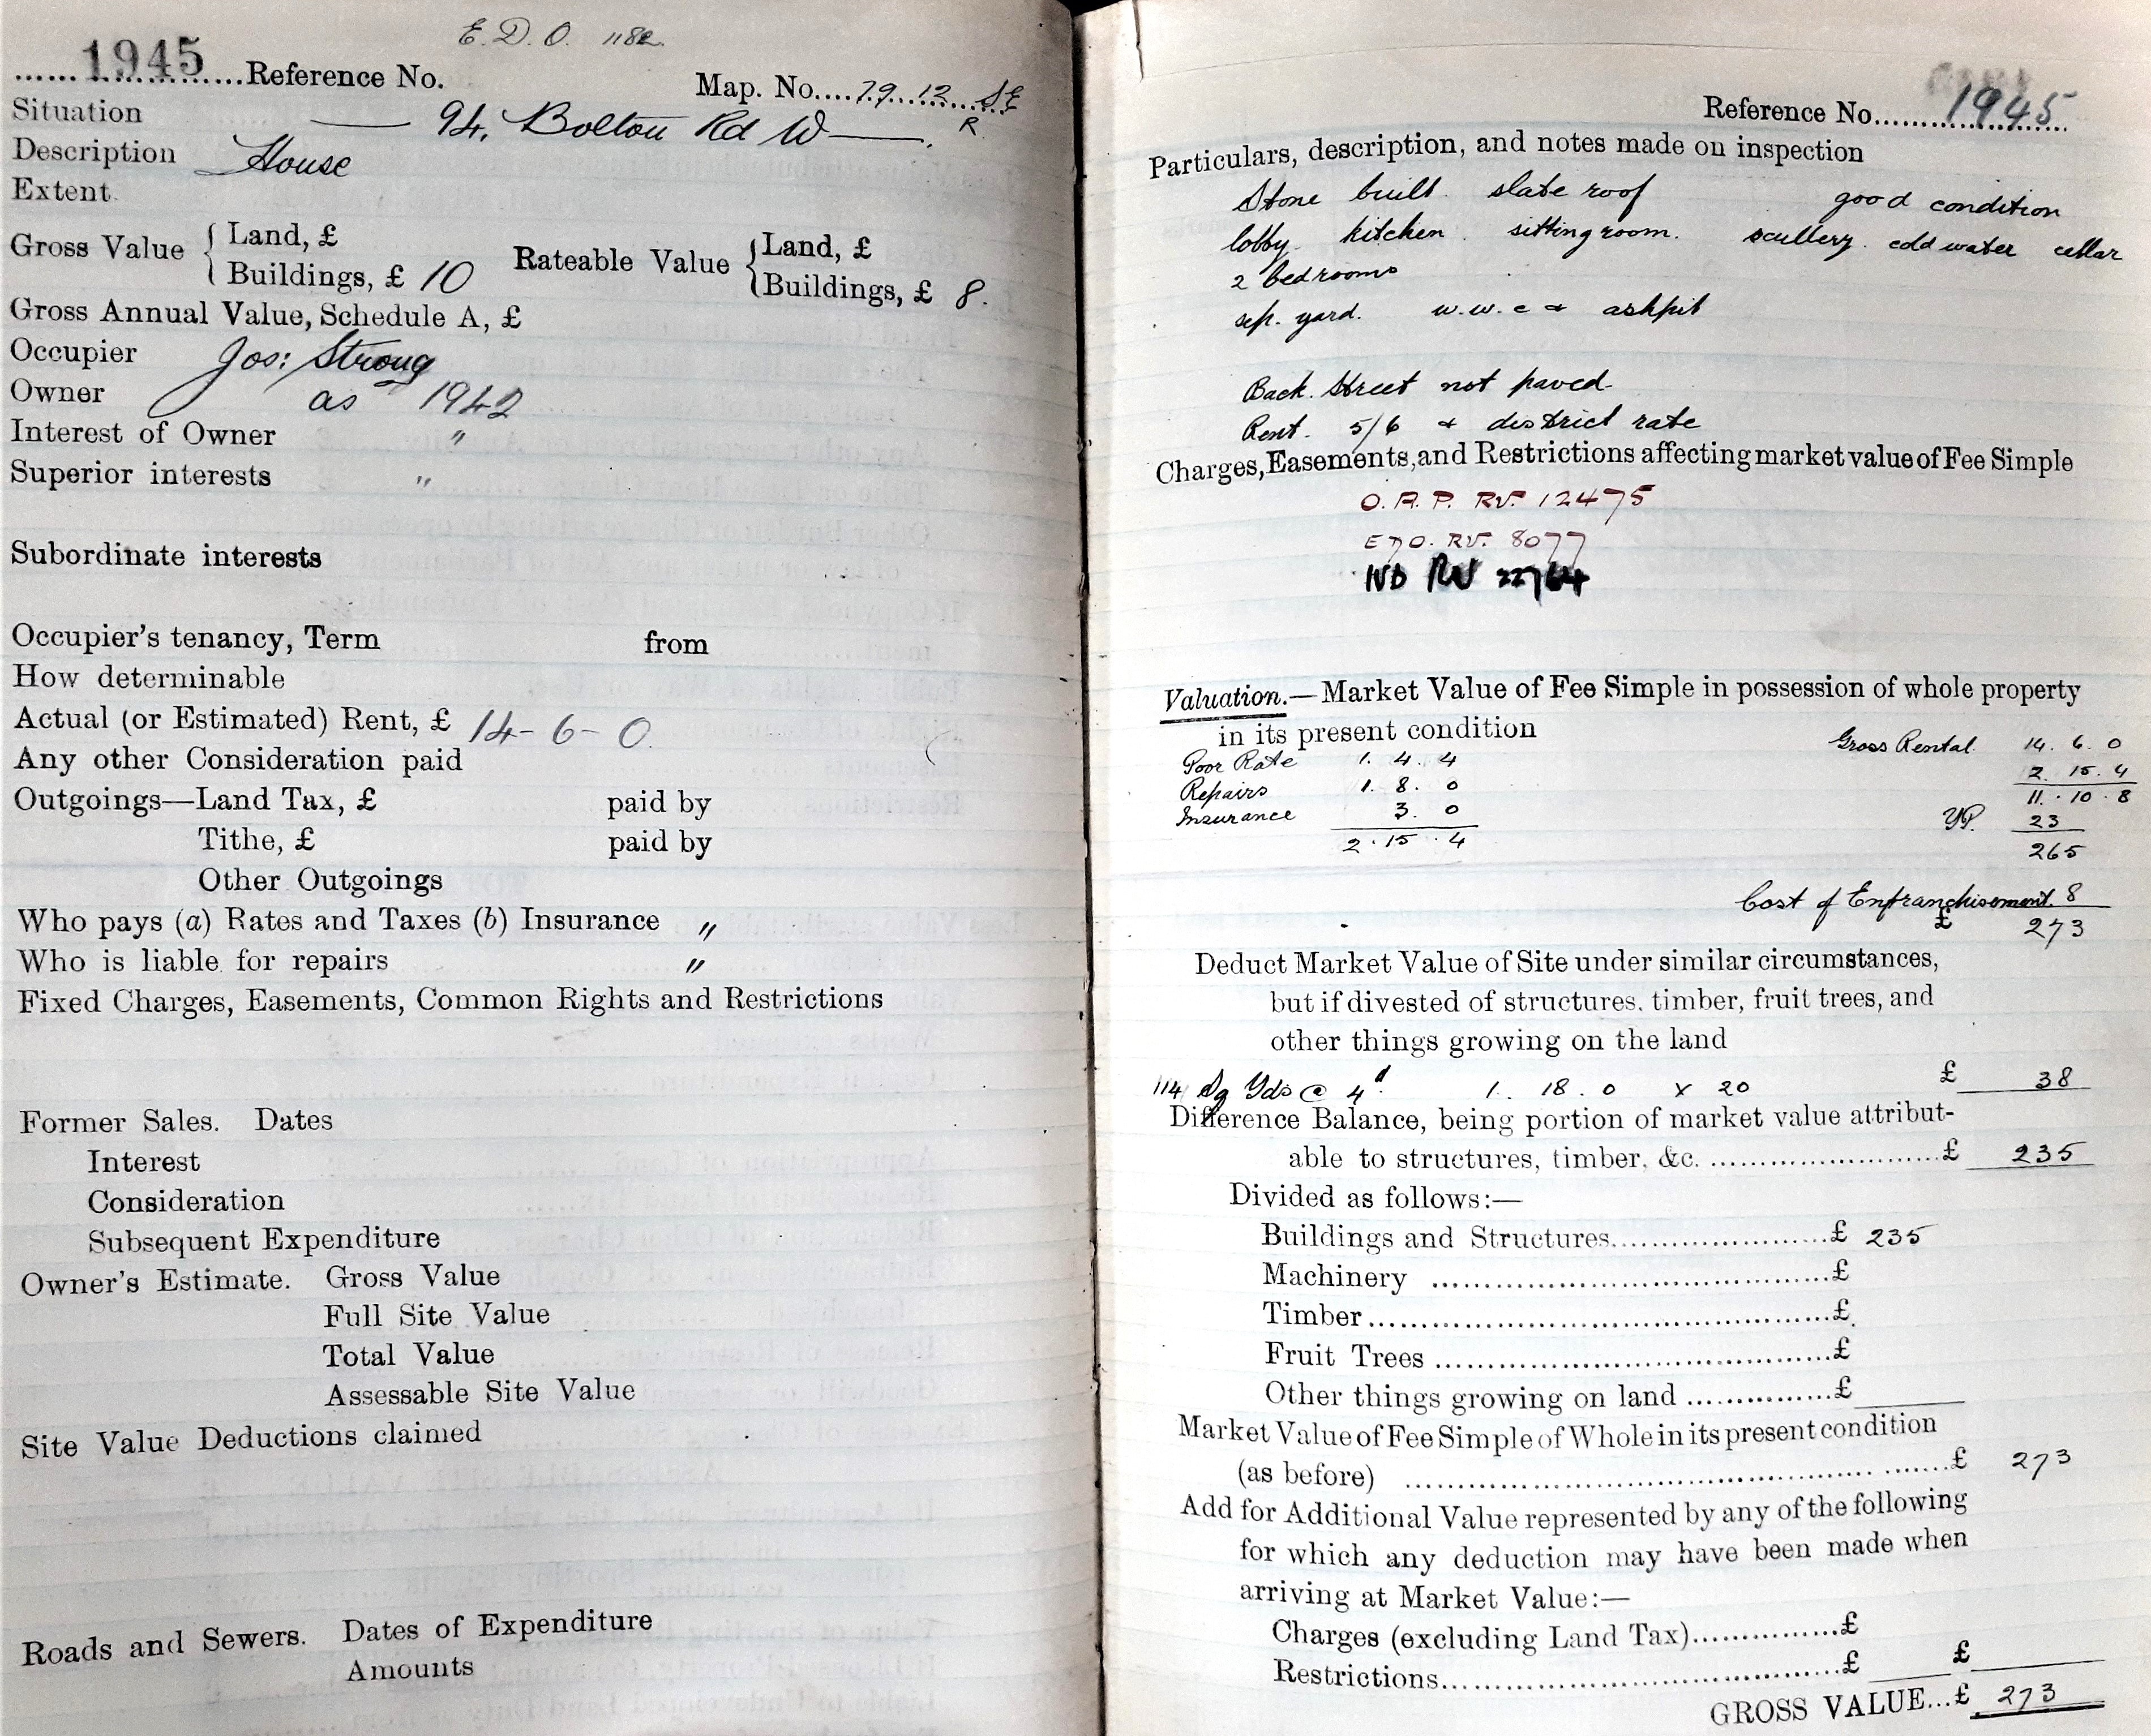 E. D. O. 1182
......1945..........Reference No.
Map. No....79...12...SE
R.
Situation — 94, Bolton Rd W —.
Description House
Extent.
Gross Value { Land, £
Buildings, £ 10
Rateable Value { Land, £
Buildings, £ 8.
Gross Annual Value, Schedule A, £
Occupier Jos: Strong
Owner as 1942
Interest of Owner "
Superior interests "
Subordinate interests
Occupier's tenancy, Term from
How determinable
Actual (or Estimated) Rent, £ 14-6-0.
Any other Consideration paid
Outgoings—Land Tax, £ paid by
Tithe, £ paid by
Other Outgoings
Who pays (a) Rates and Taxes (b) Insurance "
Who is liable for repairs "
Fixed Charges, Easements, Common Rights and Restrictions
Former Sales. Dates
Interest
Consideration
Subsequent Expenditure
Owner's Estimate. Gross Value
Full Site Value
Total Value
Assessable Site Value
Site Value Deductions claimed
Roads and Sewers. Dates of Expenditure
Amounts
Reference No.......1945......
Particulars, description, and notes made on inspection
Stone built. slate roof good condition
lobby. kitchen. sitting room. scullery. cold water cellar
2 bedrooms
sep. yard. w.w.c & ashpit
Back Street not paved
Rent. 5/6 & district rate
Charges, Easements, and Restrictions affecting market value of Fee Simple
O. A. P. RV. 12475
EDO. RV. 8077
IVD RV 22764
Valuation.—Market Value of Fee Simple in possession of whole property
in its present condition
Gross Rental. 14. 6. 0
Poor Rate 1. 4. 4
2. 15. 4
Repairs 1. 8. 0
11. 10. 8
Insurance 3. 0
YP. 23
2. 15. 4
265
Cost of Enfranchisement. 8
£ 273
Deduct Market Value of Site under similar circumstances,
but if divested of structures, timber, fruit trees, and
other things growing on the land
114 Sq Yds @ 4d. 1. 18. 0 x 20 £ 38
Difference Balance, being portion of market value attribut-
able to structures, timber, &c. ........................£ 235
Divided as follows:—
Buildings and Structures......................£ 235
Machinery ........................................£
Timber..............................................£
Fruit Trees .......................................£
Other things growing on land ..............£
Market Value of Fee Simple of Whole in its present condition
(as before) ..................................................£ 273
Add for Additional Value represented by any of the following
for which any deduction may have been made when
arriving at Market Value:—
Charges (excluding Land Tax)...............£
Restrictions.........................................£ £
GROSS VALUE...£ 273